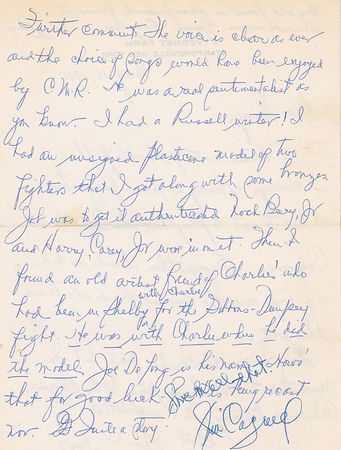 Further comment: The voice is clear as ever
and the choice of songs would have been enjoyed
by C.M.R. He was a real sentimentalist as
you know. I had a Russell winter! I
had an unsigned plasticene model of two
fighters that I got along with some bronzes.
Job was to get it authenticated. Noah Bery, Jr
and Harry Carey, Jr were in on it. Then I
found an old artist friend of Charlies' who
had been in Shelby with Charlie for the Gibbons-Dempsey
fight. He was with Charlie when he did
the model. Joe De Yong is his name. Hows'
that for good luck - is being recast
now. Quite a story.
Jim Cagney